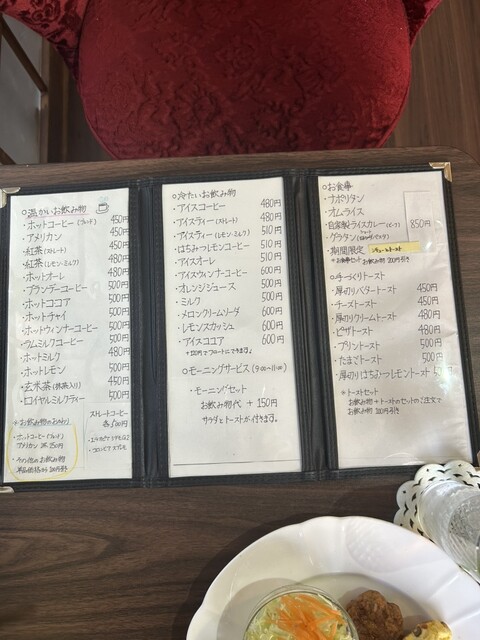 ○温かいお飲み物
・ホットコーヒー(ブレンド) 450円
・アメリカン 450円
・紅茶(ストレート) 450円
・紅茶(レモン・ミルク) 480円
・ホットオーレ 480円
・ブランデーコーヒー 500円
・ホットココア 500円
・ホットチャイ 500円
・ホットウィンナーコーヒー 500円
・ラムミルクコーヒー 500円
・ホットミルク 480円
・ホットレモン 500円
・玄米茶(抹茶入り) 450円
・ロイヤルミルクティー 500円
*お飲み物のおかわり
・ホットコーヒー(ブレンド)
アメリカン 2杯 250円
・その他のお飲み物
単品価格から 100円引き
ストレートコーヒー
各600円
○冷たいお飲み物
・アイスコーヒー 480円
・アイスティー(ストレート) 480円
・アイスティー(レモン・ミルク) 510円
・はちみつレモンコーヒー 510円
・アイスオーレ 510円
・アイスウィンナコーヒー 600円
・オレンジジュース 500円
・ミルク 500円
・メロンクリームソーダ 600円
・レモンスカッシュ 600円
・アイスココア 600円
*150円でフロートにできます。
○モーニングサービス(9:00〜11:00)
・モーニングセット
お飲み物代 + 150円
サラダとトーストが付きます。
○お食事
・ナポリタン
・オムライス
・自家製ライスカレー(ビーフ)
・グラタン
850円
・期間限定
*お食事セット お飲み物 200円引き
○手づくりトースト
・厚切りバタートースト 450円
・チーズトースト 450円
・厚切りクリームトースト 480円
・ピザトースト 480円
・プリントースト 500円
・たまごトースト 500円
・厚切りはちみつレモントースト 500円
*トーストセット
お飲み物+トーストのセットのご注文で
お飲み物 100円引き